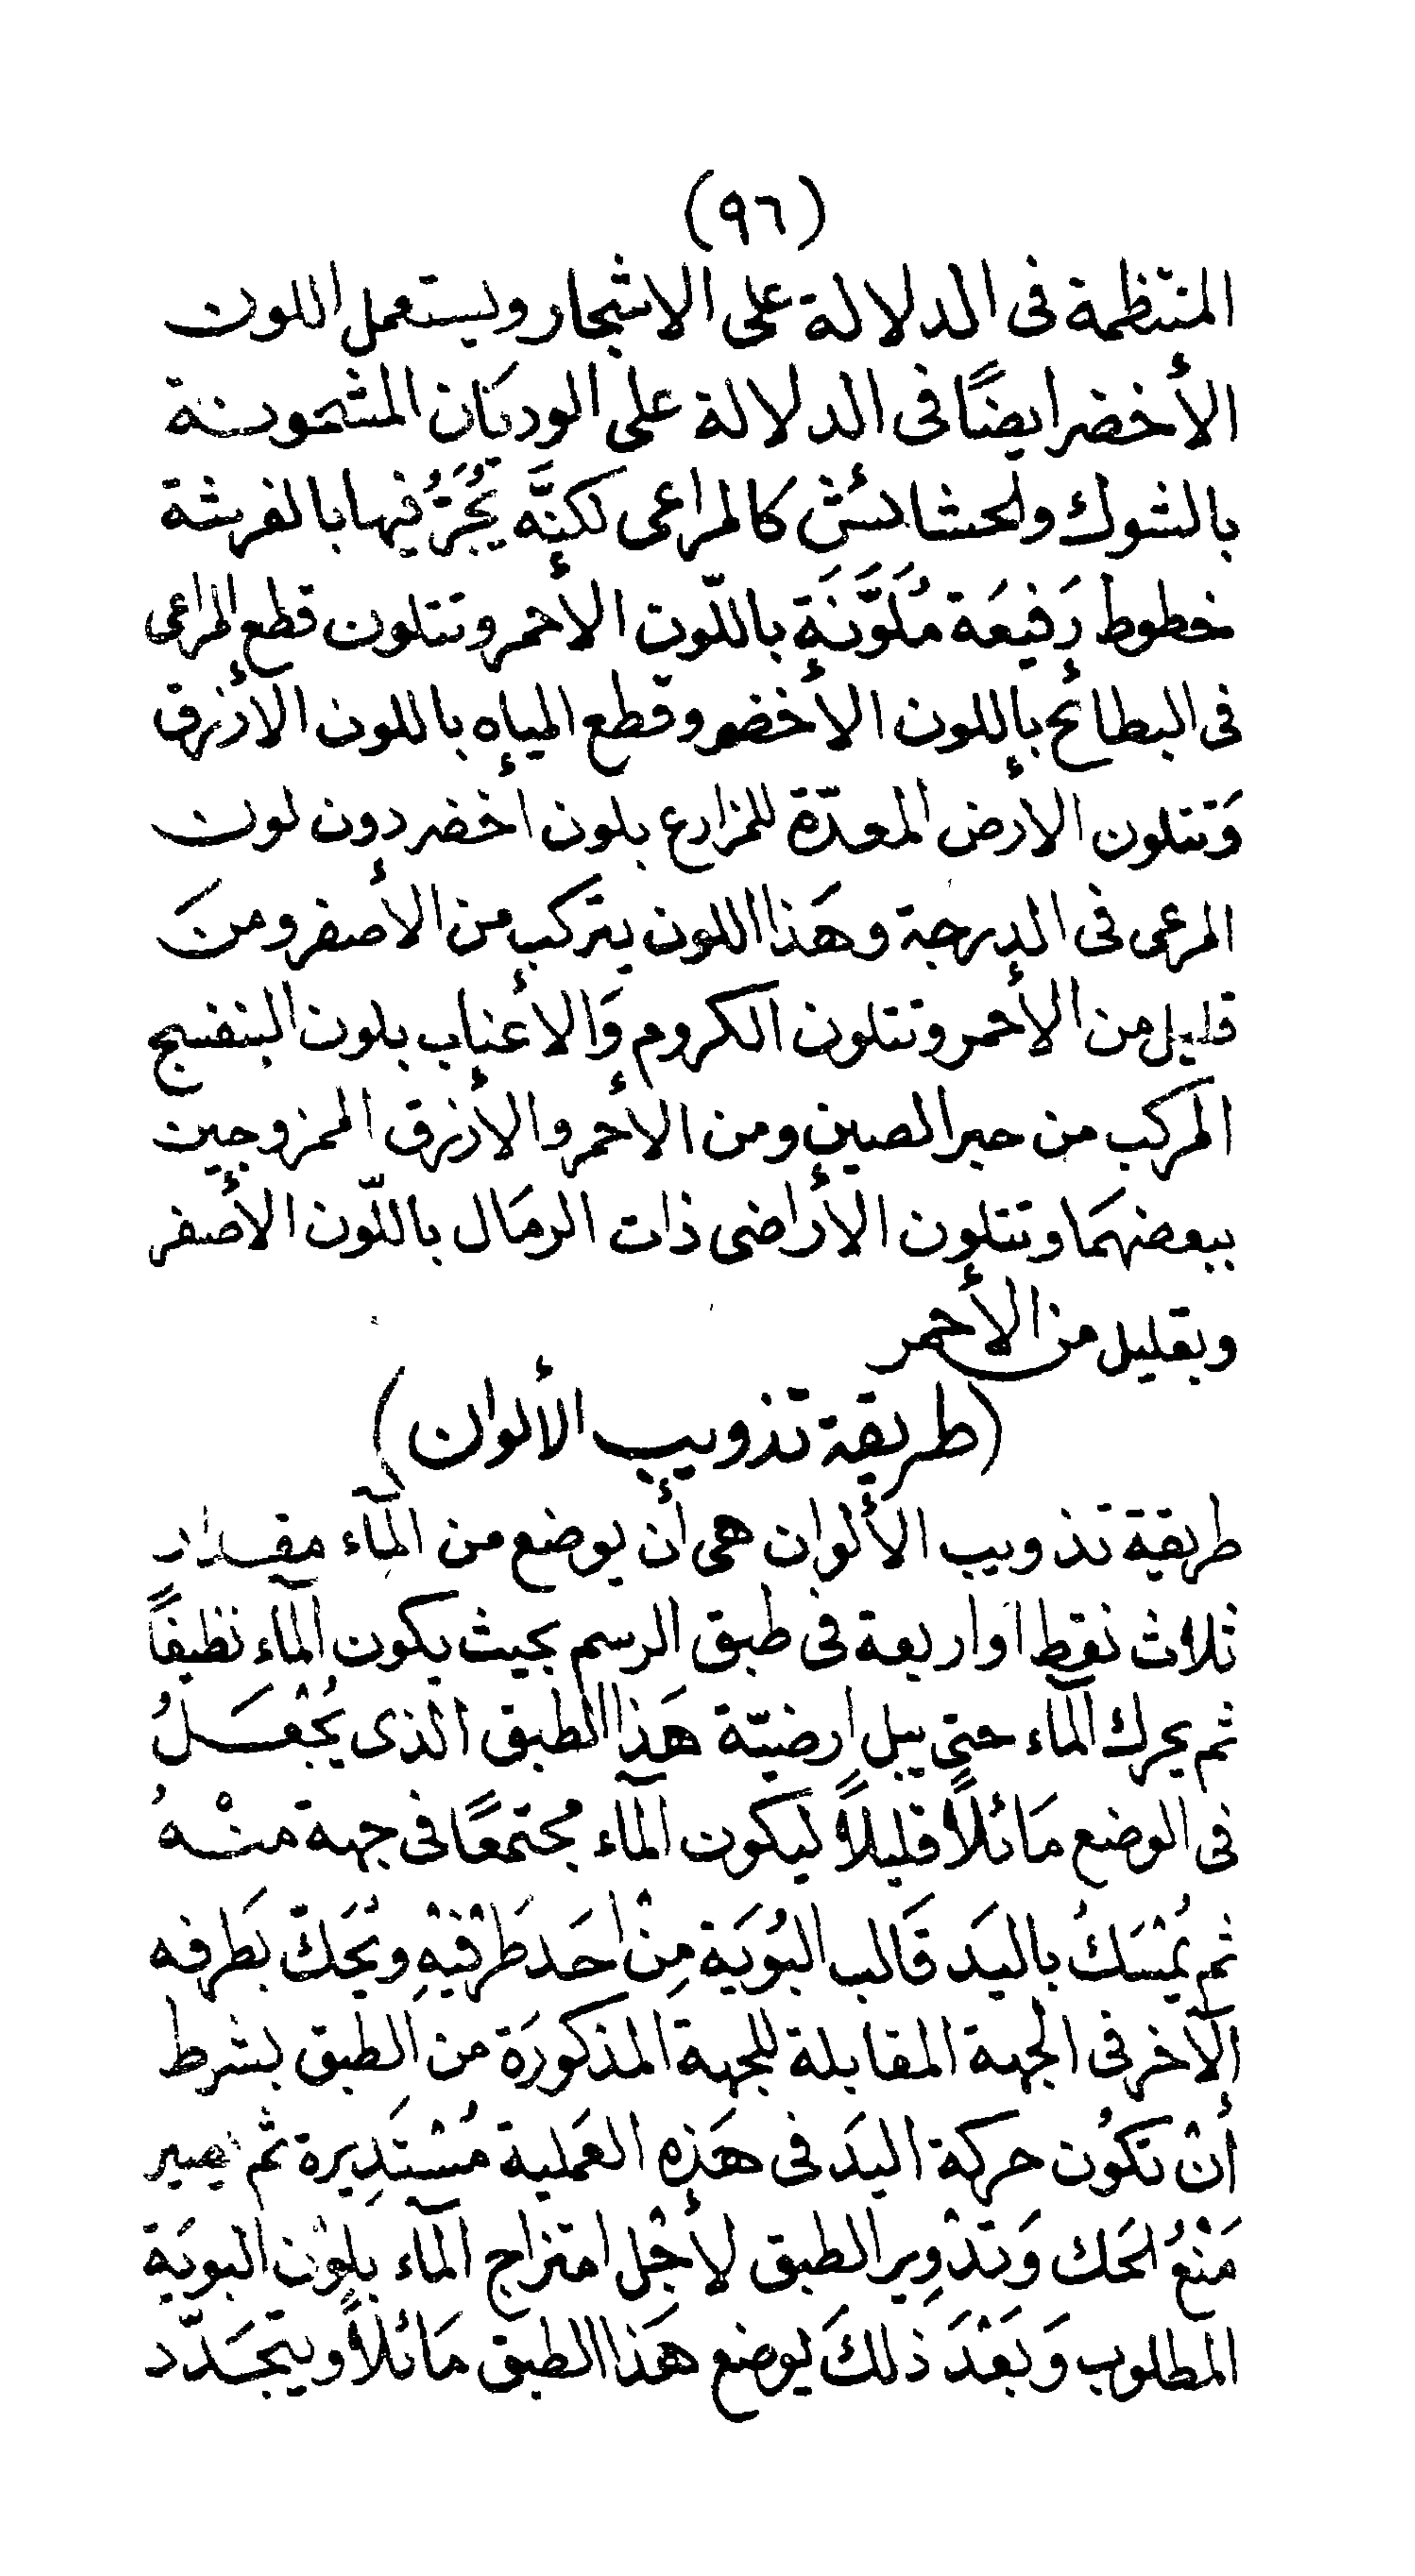 (٩٦)
المنتظمة فى الدلالة على الاشجار ويستعمل اللون
الأخضر ايضًا فى الدلالة على الوديَان المشحونة
بالشوك ولحشائش كالمراعى لكنَّه يُجَرُّ فيها بالفرشة
خطوط رَفيعَة مُلَوَّنَة باللّون الأحمر وتتلون قطع المراعى
فى البطائح باللون الأخضر وقطع المياه باللون الأزرق
وَتتلون الأرض المعدّة للمزارع بلون اخضر دون لون
المرعى فى الدرجة وهَذا اللون يتركب من الأصفر ومنَ
قليل من الأحمر وتتلون الكروم وَالأعناب بلون البنفسج
المركب من حبر الصين ومن الأحمر والأزرق الممزوجين
ببعضهمَا وتتلون الأراضى ذات الرمَال باللّون الأصفر
وبقليل من الأحمر
(طريقة تذويب الألوان)
طريقة تذويب الألوان هى أن يوضع من المآء مقدار
ثلاث نقط او اربعة فى طبق الرسم بحيث يكون المآء نظيفًا
ثم يحرك المآء حتى يبل ارضيّة هَذا الطبق الذى يُجْعَلُ
فى الوضع مَائلاً قليلاً ليكون المآء مجتمعًا فى جهة منْهُ
ثم يُمْسَكُ باليَد قَالب البُويَة مِنْ احَد طَرْفَيْهِ ويُحَكّ بطَرفه
الآخر فى الجهة المقابلة للجهة المذكورَة من الطبق بشرط
أنْ تكُون حركة اليَد فى هَذِه العَملية مُسْتَدِيرة ثم يصير
مَنْعُ لحَك وَتَدْوِير الطبق لأجْل امتزاج المآء بلوْن البويَة
المطلوب وَبَعْدَ ذلكَ يوضع هَذا الطبق مَائلاً ويتجَدّد